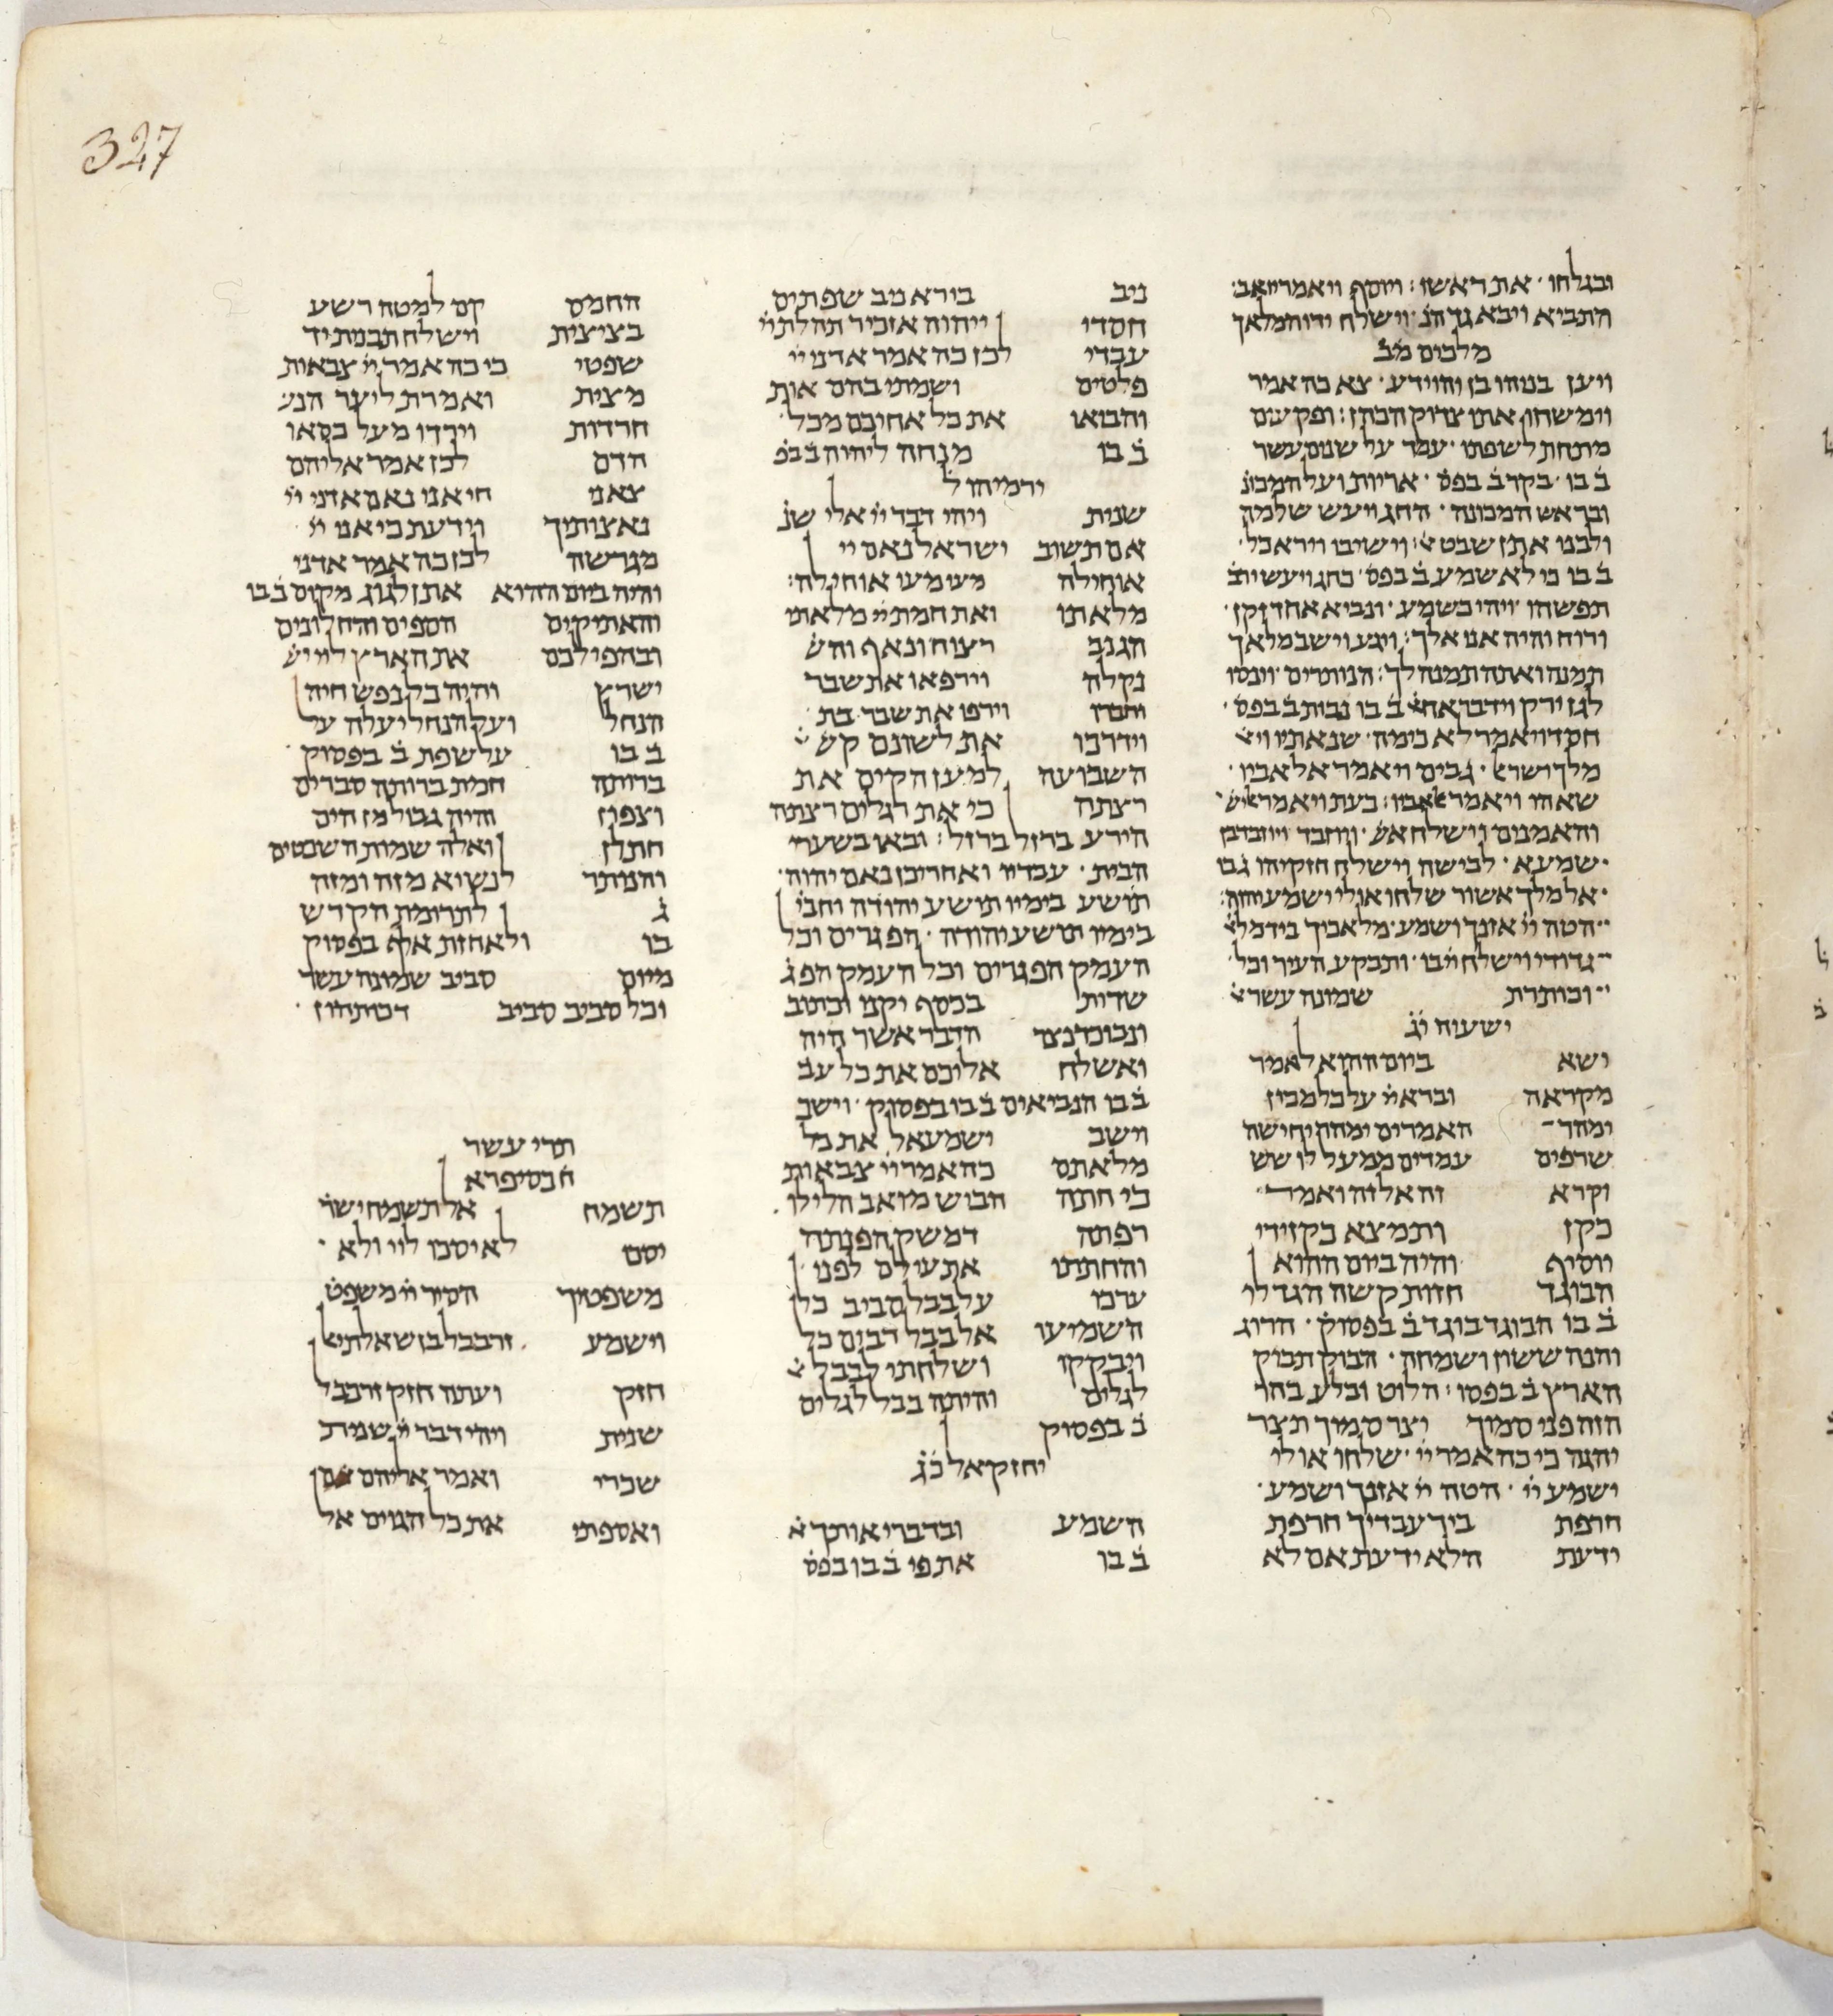 327
ובגלחו · את ראשו : ויוסף ויאמר יואב ·
הנביא ויבא גד הנ̇ · וישלח ידו המלאך
מלכים מ̇ב̇
ויען בניהו בן יהוידע · צא כה אמר
וימשחו אתו צדוק הכהן : ופקעים
מתחת לשפתו · עמד על שנים עשר
ב̇ בו · בקר ב̇ בפס̇ · אריות ועל המכונ̇
ובראש המכונה · החג ויעש שלמה
ב̇ בו כי לא שמע ב̇ בפס̇ · כחג ויעש ירב̇
תפשהו · ויהי כשמע · ונביא אחד זקן ·
ורוח והיה אני אלך :
הנותרים · וינסו
מלך ושרא · גבים ויאמר אל אביו ·
והאמנים וישלח
שמעא · לכישה וישלח חזקיהו ג̇ בו
אל מלך אשור שלחו אולי ישמע יהוה :
הטה יי̇ אזנך ושמע · מלאכיך ביד מלא̇
גדודי וישלח יי̇ בו · ותבקע העיר וכל ·
וכותרת שמונה עשר א̇
ישעיה ו̇ג̇
ישא ביום ההוא לאמר
מקראה וברא יי̇ על כל מכון
ימהר האמרים ימהר יחישה
שרפים עמדים ממעל לו שש
וקרא זה אל זה ואמר
כקן ותמצא כקן ידי
יוסיף והיה ביום ההוא
הבוגד חזות קשה הגד לי
ב̇ בו הבוגד בוגד ב̇ בפסוק̇ · הרוג
והנה ששון ושמחה · הבוק תבוק
הארץ ב̇ בפסו̇ : הלוט ובלע בהר
הזה פני סמוך יצר סמוך תצר
יהגה כי כה אמר יי̇ · שלחו אולי
ישמע יי̇ · הטה יי̇ אזנך ושמע ·
חרפת ביד עבדיך חרפת
ידעת הלא ידעת אם לא
ניב בורא נוב שפתים
חסדי יי̇ יהוה אזכיר תהלת יי̇
עבדי לכן כה אמר אדני יי̇
פלטים ושמתי בהם אות
והביאו את כל אחיכם מכל ·
ב̇ בו מנחה ליהוה ב̇ בפ̇
ירמיהו ל̇
שנית ויהי דבר יי̇ אלי שנ̇
אם תשוב ישראל נאם יי̇
אוחילה מעי מעי אוחילה :
מלאתי ואת חמת יי̇ מלאתי
הגנב רצוח ונאף והש̇
נקלה וירפאו את שבר
וירפו את שבר בת ·
וידרכו את לשונם קש̇
השבועה למען הקים את
רצתה כי את רגלים רצתה
הירע ברזל ברזל : ובאו בשערי
הבית · עבדיו ואחרי כן נאם יהוה ·
תושע בימיו תושע יהודה וחבי̇
בימיו תושע יהודה · הפגרים וכל
העמק הפגרים וכל העמק הפג̇
שדות בכסף יקנו וכתוב
ונבוכדנצר הדבר אשר היה
ואשלח אליכם את כל עב̇
ב̇ בו הנביאים ב̇ בו בפסוק · וישב
וישב ישמעאל את כל
מלאתם כה אמר יי̇ צבאות
כי חתה הביש מואב הלילו ·
רפתה דמשק הפנתה
והחתתי את עולם לפני
ערכו על בבל סביב כל
השמיעו אל בבל רבים כל
ויבקקו ושלחתי לבבל
לגלים והיתה בבל לגלים
ב̇ בפסוק
יחזקאל כ̇ג̇
השמע ובדברי אותך א̇
ב̇ בו את פי ב̇ בו בפס̇
החמס קם למטה רשע
בציצית וישלח תבנית יד
שפטי כי כה אמר יי̇ צבאות
מצית ואמרת ליער הנג̇
חרדות וירדו מעל כסאו
הדם לכן אמר אליהם
צאני חי אני נאם אדני יי̇
נאצותיך וידעת כי אני יי̇
מגרשה לכן כה אמר אדני
והיה ביום ההוא אתן לגוג מקום ב̇ בו
והאתיקים הספים והחלונים
ובהפילכם את הארץ ליי̇
ישרץ והיה כל נפש חיה
הנחל ועל הנחל יעלה על
ב̇ בו על שפת ב̇ בפסוק ·
ברותה חמת ברותה סברים
וצפון והיה גבול מן הים
חתלן ואלה שמות השבטים
והנותר לנשיא מזה ומזה
ג̇ לתרומת הקדש
בו ולאחזת בפסוק
מיום סביב שמונה עשר
וכל סביב סביב דכותהון ·
תרי עשר
ח̇ בסיפרא
תשמח אל תשמח ישר̇
יסכו לא יסכו ליי ולא ·
משפטיך הסיר יי̇ משפט̇
וישמע זרבבל בן שאלתיא̇
חזק ועתה חזק זרבבל
שנית ויהי דבר יי̇ שנית
שכרי ואמר אליהם אם
ואספתי את כל הגוים אל